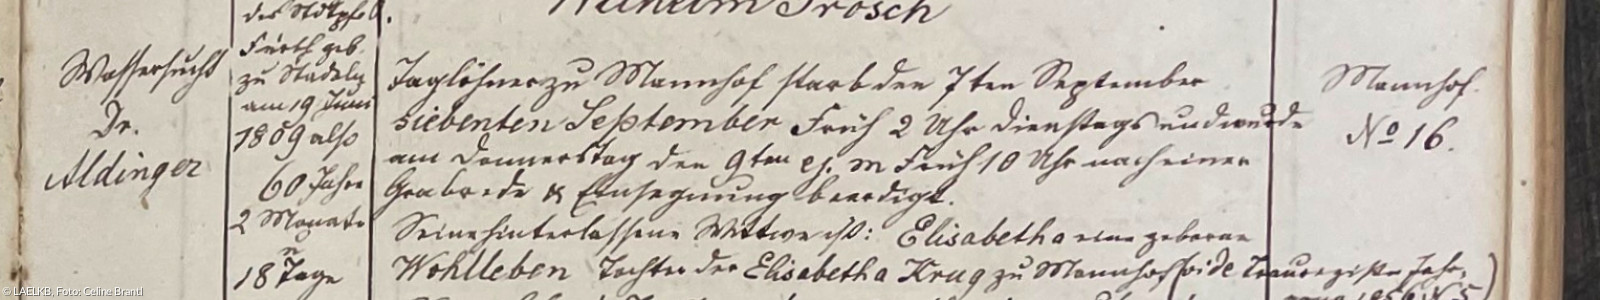 des Stdtpfd.
Wilhelm Frosch
Fürth geb.
zu Stadeln
am 19 Juni
1809 also
60 Jahre
2 Monate
18 Tage
Wassersucht
Dr.
Aldinger
Taglöhner zu Mannhof starb den 7ten September
siebenten September Früh 2 Uhr Dienstags und wurde
am Donnerstag den 9ten ej. m Früh 10 Uhr nach einer
Grabrede & Einsegnung beerdigt.
Seine hinterlassene Wittwe ist: Elisabetha eine geborne
Wohlleben Tochter der Elisabetha Krug zu Mannhof (vide Trauregister Jahr-
Mannhof.
No 16.
© LAELKB, Foto: Celine Brantl